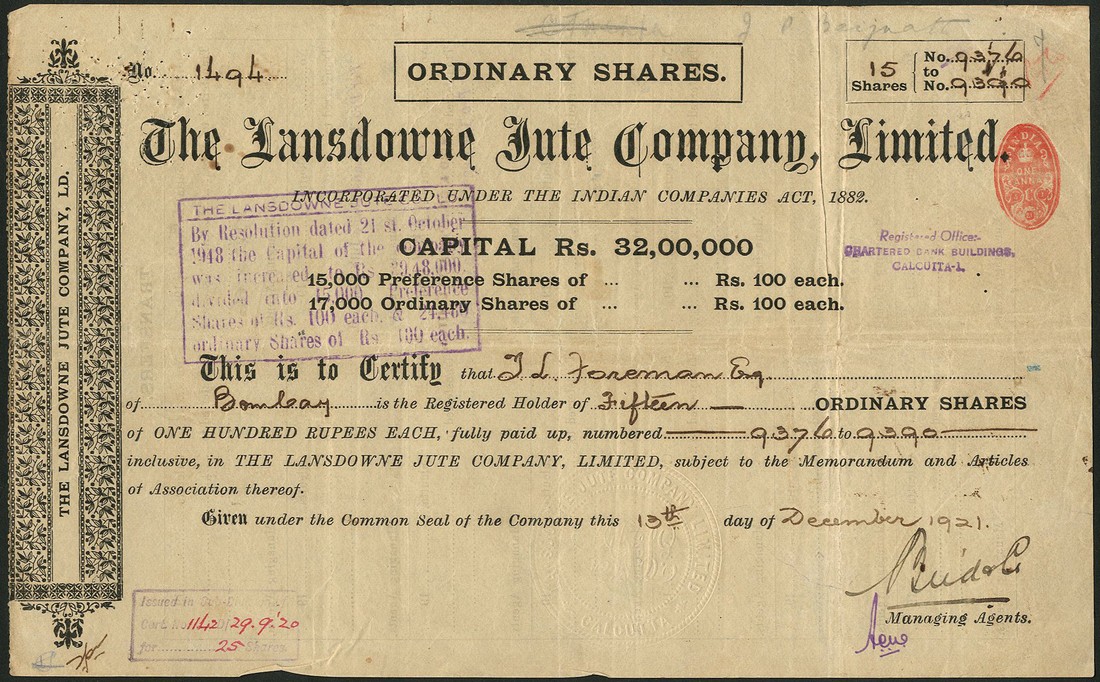 No. 1494
ORDINARY SHARES.
15 Shares
No. 9376
to
No. 9390
The Lansdowne Jute Company, Limited.
INCORPORATED UNDER THE INDIAN COMPANIES ACT, 1882.
INDIA
ONE ANNA
THE LANSDOWNE
By Resolution dated 21 st. October
1948 the Capital of the
was increased to Rs.
divided into 15,000 Preference
Shares of Rs. 100 each. &
ordinary Shares of Rs 100 each.
CAPITAL Rs. 32,00,000
15,000 Preference Shares of ... ... Rs. 100 each.
17,000 Ordinary Shares of ... ... Rs. 100 each.
Registered Office:-
CHARTERED BANK BUILDINGS,
CALCUTTA-1.
This is to Certify that Foreman Esq
of Bombay is the Registered Holder of Fifteen — ORDINARY SHARES
of ONE HUNDRED RUPEES EACH, fully paid up, numbered 9376 to 9390
inclusive, in THE LANSDOWNE JUTE COMPANY, LIMITED, subject to the Memorandum and Articles
of Association thereof.
Given under the Common Seal of the Company this 13th day of December 1921.
JUTE COMPANY LIMITED
Managing Agents.
Issued in
Cert. 1142 29.9.20
for 25 Shares
THE LANSDOWNE JUTE COMPANY, LD.